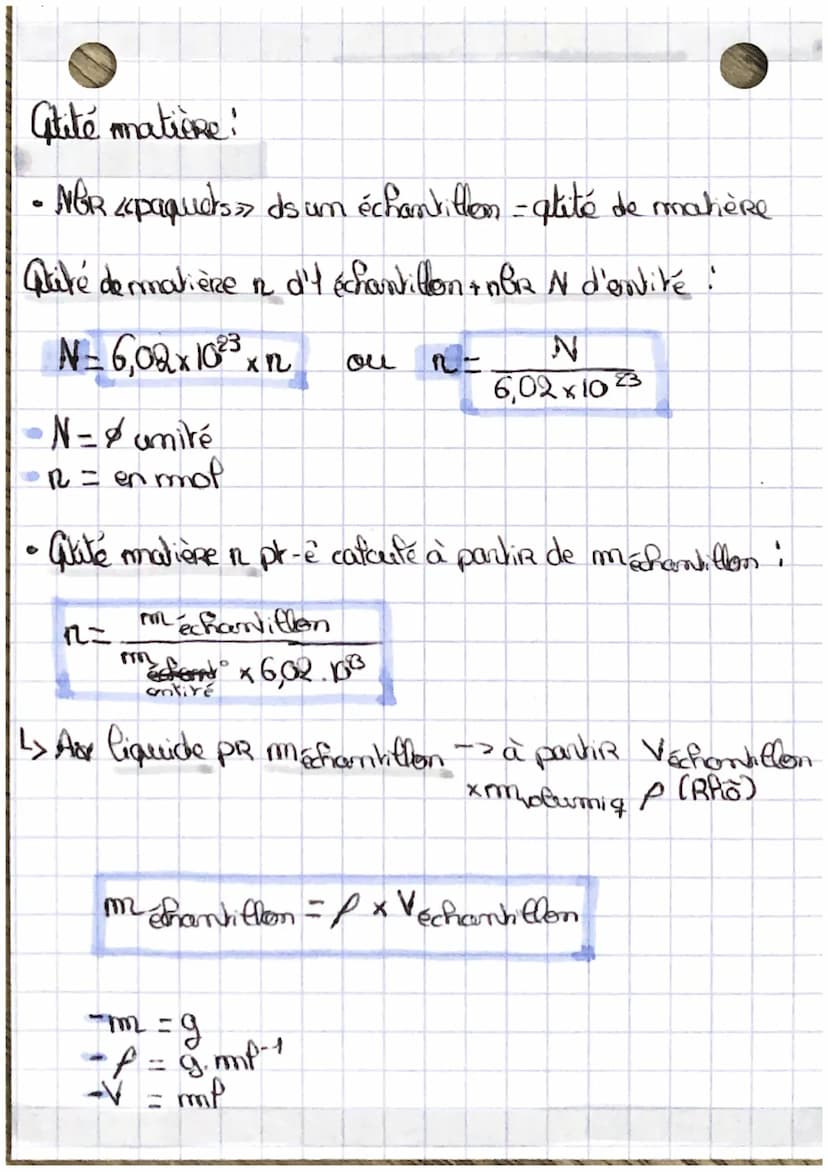 Qtité matière :
• NBR «paquets» ds un échantillon = qtité de matière
Qtité de matière n d'1 échantillon + nBR N d'entité :
N = 6,02 x 10²³ x n ou n = N / 6,02 x 10²³
- N = ∅ unité
- n = en mol
• Qtité matière n pt-ê calculé à partir de m échantillon :
n = m échantillon / m entité x 6,02 . 10²³
↳ liquide PR m échantillon -> à partir V échantillon
x m volumiq ρ (Rhô)
m échantillon = ρ x V échantillon
- m = g
- ρ = g.ml⁻¹
- V = ml